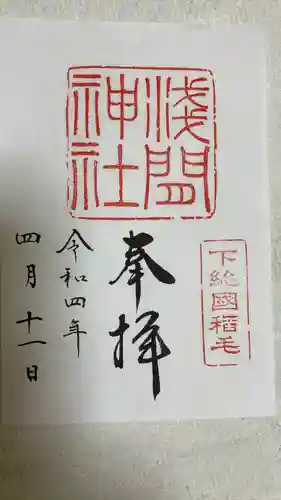 下総國稲毛
奉拝
淺間
神社
令和四年
四月十一日